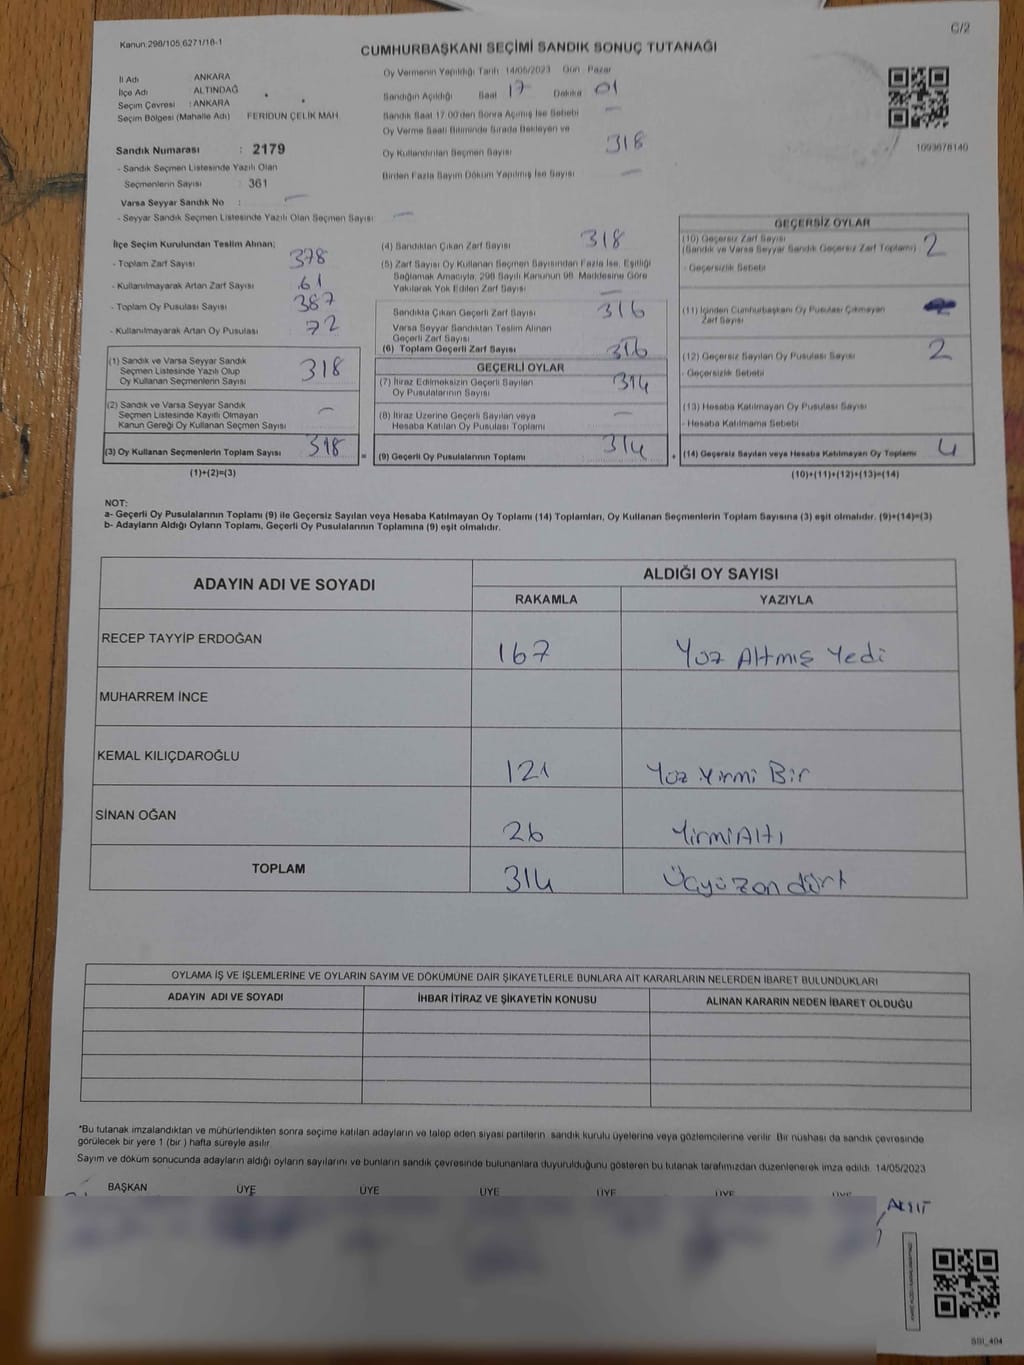 Kanun:298/105,6271/16-1
C/2
CUMHURBAŞKANI SEÇİMİ SANDIK SONUÇ TUTANAĞI
İl Adı : ANKARA
İlçe Adı : ALTINDAĞ
Seçim Çevresi : ANKARA
Seçim Bölgesi (Mahalle Adı) FERİDUN ÇELİK MAH.
Sandık Numarası : 2179
- Sandık Seçmen Listesinde Yazılı Olan
Seçmenlerin Sayısı : 361
Varsa Seyyar Sandık No : —
- Seyyar Sandık Seçmen Listesinde Yazılı Olan Seçmen Sayısı: —
Oy Vermenin Yapıldığı Tarih 14/05/2023 Gün Pazar
Sandığın Açıldığı Saat 17 Dakika 01
Sandık Saat 17:00'den Sonra Açılmış İse Sebebi —
Oy Verme Saati Bitiminde Sırada Bekleyen ve
Oy Kullandırılan Seçmen Sayısı 318
Birden Fazla Sayım Döküm Yapılmış İse Sayısı —
1093678140
İlçe Seçim Kurulundan Teslim Alınan;
- Toplam Zarf Sayısı 378
- Kullanılmayarak Artan Zarf Sayısı 61
- Toplam Oy Pusulası Sayısı 387
- Kullanılmayarak Artan Oy Pusulası 72
(1) Sandık ve Varsa Seyyar Sandık
Seçmen Listesinde Yazılı Olup
Oy Kullanan Seçmenlerin Sayısı 318
(2) Sandık ve Varsa Seyyar Sandık
Seçmen Listesinde Kayıtlı Olmayan
Kanun Gereği Oy Kullanan Seçmen Sayısı —
(3) Oy Kullanan Seçmenlerin Toplam Sayısı 318
(1)+(2)=(3)
(4) Sandıktan Çıkan Zarf Sayısı 318
(5) Zarf Sayısı Oy Kullanan Seçmen Sayısından Fazla İse, Eşitliği
Sağlamak Amacıyla, 298 Sayılı Kanunun 98. Maddesine Göre
Yakılarak Yok Edilen Zarf Sayısı —
Sandıkta Çıkan Geçerli Zarf Sayısı 316
Varsa Seyyar Sandıktan Teslim Alınan
Geçerli Zarf Sayısı
(6) Toplam Geçerli Zarf Sayısı 316
GEÇERLİ OYLAR
(7) İtiraz Edilmeksizin Geçerli Sayılan
Oy Pusulalarının Sayısı 314
(8) İtiraz Üzerine Geçerli Sayılan veya
Hesaba Katılan Oy Pusulası Toplamı —
= (9) Geçerli Oy Pusulalarının Toplamı 314
GEÇERSİZ OYLAR
(10) Geçersiz Zarf Sayısı
(Sandık ve Varsa Seyyar Sandık Geçersiz Zarf Toplamı) 2
- Geçersizlik Sebebi
(11) İçinden Cumhurbaşkanı Oy Pusulası Çıkmayan
Zarf Sayısı
(12) Geçersiz Sayılan Oy Pusulası Sayısı 2
- Geçersizlik Sebebi
(13) Hesaba Katılmayan Oy Pusulası Sayısı
- Hesaba Katılmama Sebebi
+ (14) Geçersiz Sayılan veya Hesaba Katılmayan Oy Toplamı 4
(10)+(11)+(12)+(13)=(14)
NOT:
a- Geçerli Oy Pusulalarının Toplamı (9) ile Geçersiz Sayılan veya Hesaba Katılmayan Oy Toplamı (14) Toplamları, Oy Kullanan Seçmenlerin Toplam Sayısına (3) eşit olmalıdır. (9)+(14)=(3)
b- Adayların Aldığı Oyların Toplamı, Geçerli Oy Pusulalarının Toplamına (9) eşit olmalıdır.
ADAYIN ADI VE SOYADI ALDIĞI OY SAYISI
RAKAMLA YAZIYLA
RECEP TAYYİP ERDOĞAN 167 Yüz Altmış Yedi
MUHARREM İNCE
KEMAL KILIÇDAROĞLU 121 Yüz Yirmi Bir
SİNAN OĞAN 26 Yirmi Altı
TOPLAM 314 Üçyüzon dört
OYLAMA İŞ VE İŞLEMLERİNE VE OYLARIN SAYIM VE DÖKÜMÜNE DAİR ŞİKAYETLERLE BUNLARA AİT KARARLARIN NELERDEN İBARET BULUNDUKLARI
ADAYIN ADI VE SOYADI İHBAR İTİRAZ VE ŞİKAYETİN KONUSU ALINAN KARARIN NEDEN İBARET OLDUĞU
*Bu tutanak imzalandıktan ve mühürlendikten sonra seçime katılan adayların ve talep eden siyasi partilerin sandık kurulu üyelerine veya gözlemcilerine verilir. Bir nüshası da sandık çevresinde
görülecek bir yere 1 (bir ) hafta süreyle asılır.
Sayım ve döküm sonucunda adayların aldığı oyların sayılarını ve bunların sandık çevresinde bulunanlara duyurulduğunu gösteren bu tutanak tarafımızdan düzenlenerek imza edildi. 14/05/2023
BAŞKAN ÜYE ÜYE ÜYE ÜYE ÜYE ÜYE
SSI_404